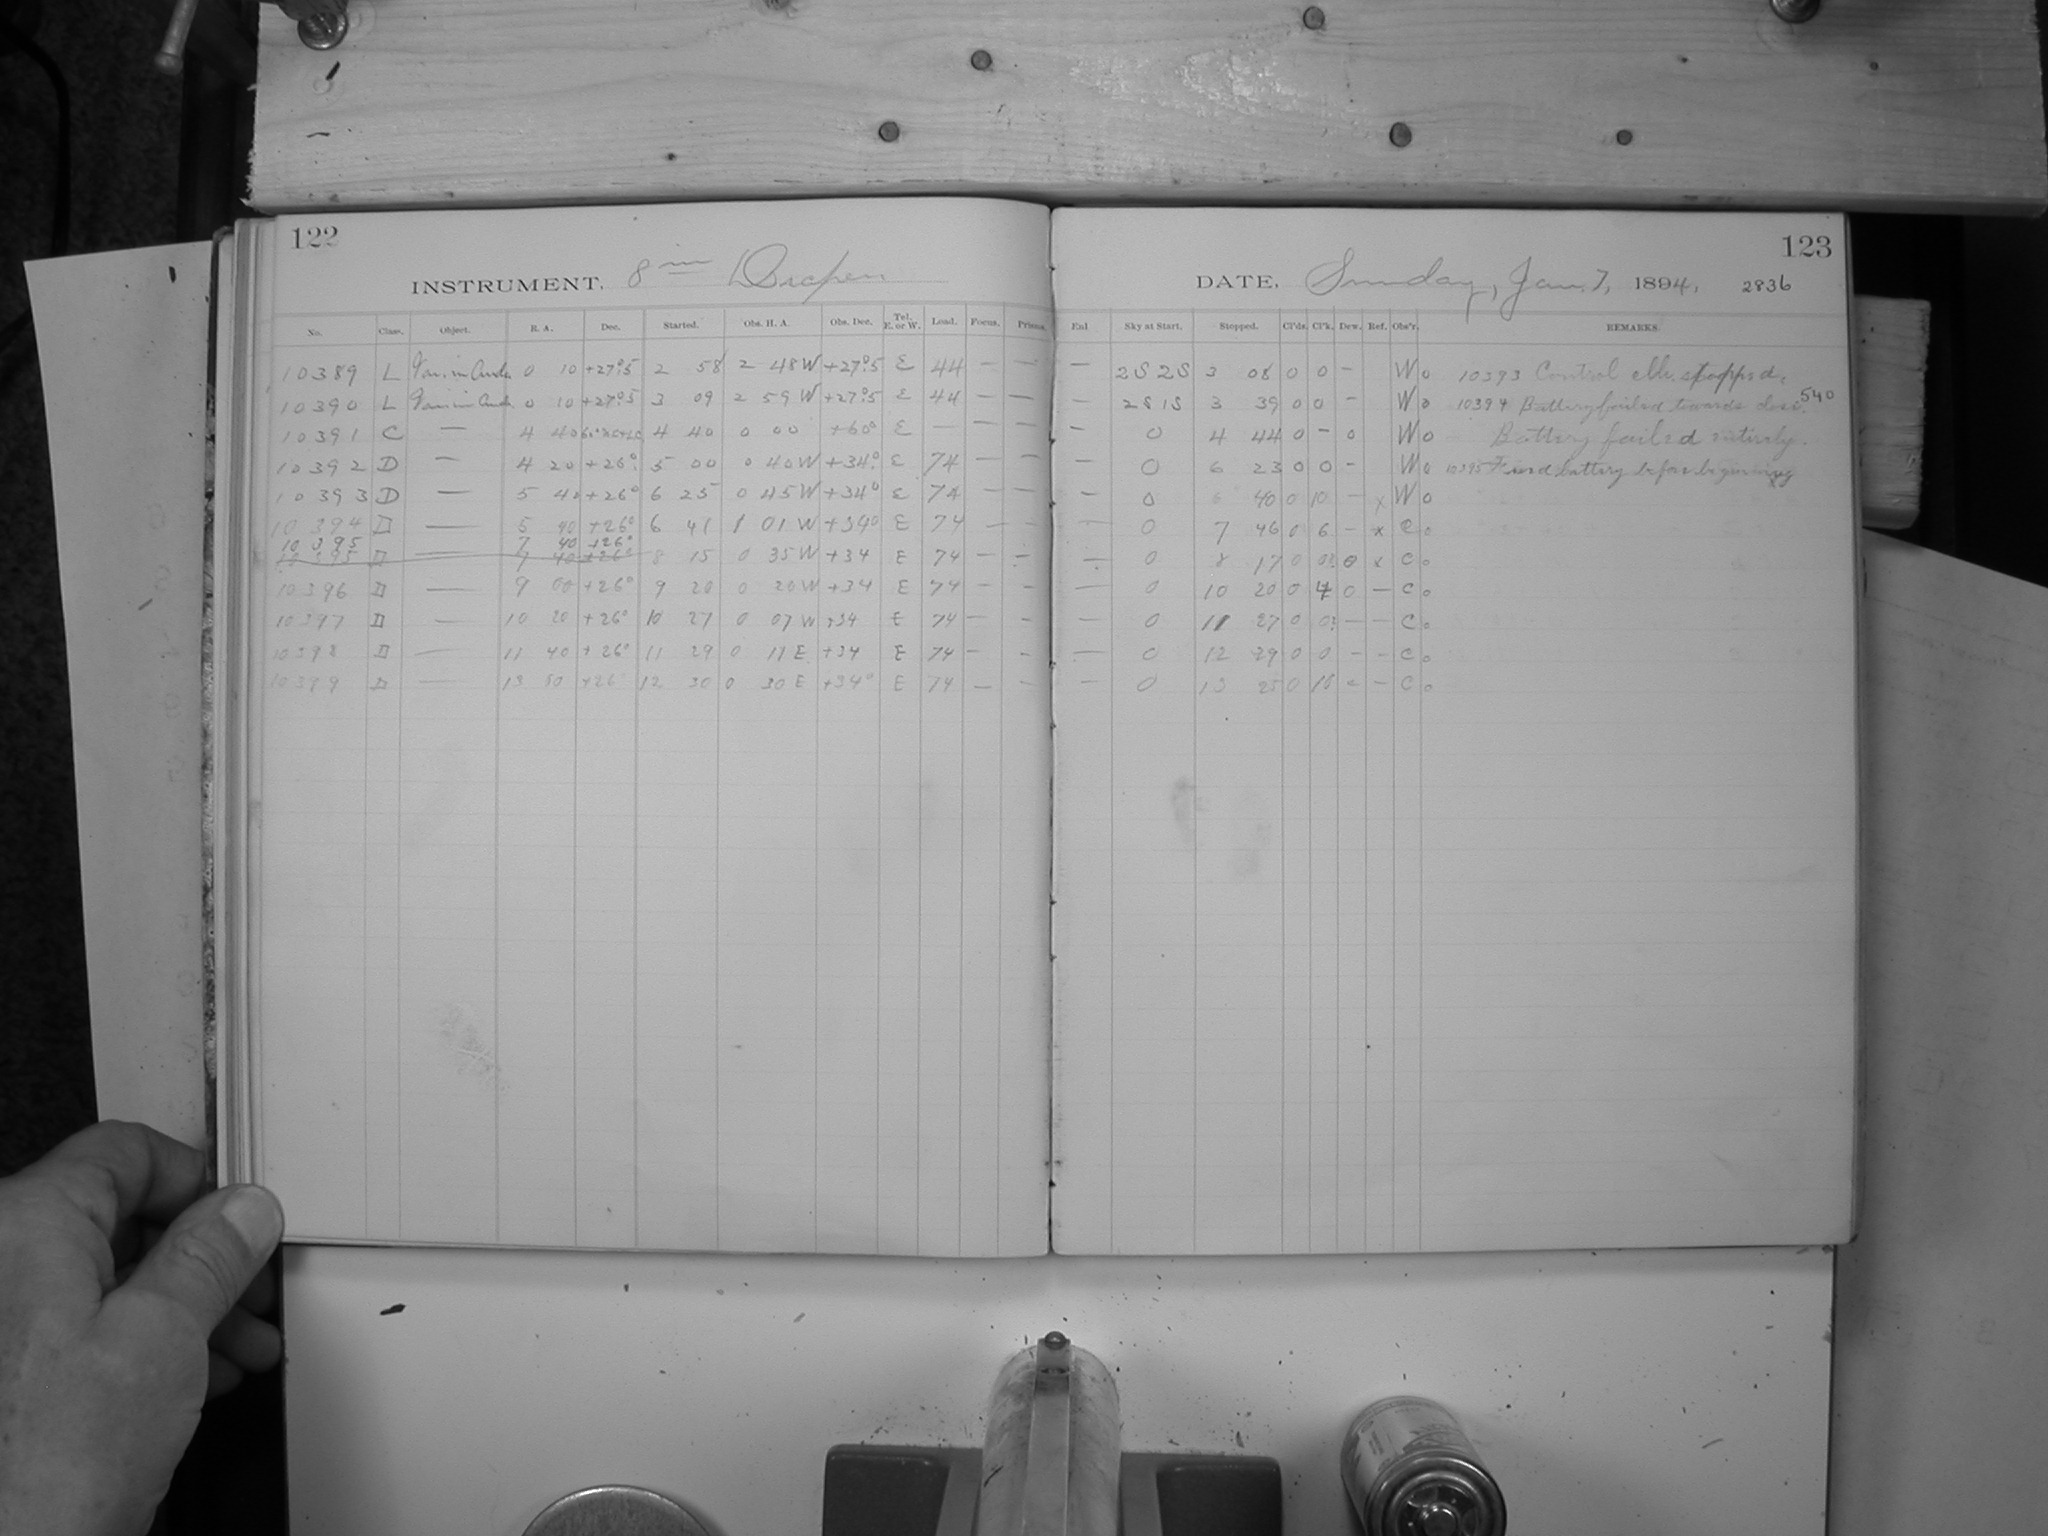 122
INSTRUMENT. 8 in Draper
No. Class. Object. R. A. Dec. Started. Obs. H. A. Obs. Dec. Tel. E. or W. Load. Focus. Prisms.
10389 L Var. in Andr. 0 10 +27°.5 2 58 2 48 W +27°.5 E 44 — —
10390 L Var. in Andr. 0 10 +27°.5 3 09 2 59 W +27°.5 E 44 — —
10391 C — 4 40 4 40 0 00 +60° E — — —
10392 D — 4 20 +26° 5 00 0 40 W +34° E 74 — —
10393 D — 5 40 +26° 6 25 0 45 W +34° E 74 — —
10394 D — 5 40 +26° 6 41 1 01 W +34° E 74 — —
10395 7 40 +26°
10395 D — 7 40 +26° 8 15 0 35 W +34 E 74 — —
10396 D — 9 00 +26° 9 20 0 20 W +34 E 74 — —
10397 D — 10 20 +26° 10 27 0 07 W +34 E 74 — —
10398 D — 11 40 +26° 11 29 0 11 E +34 E 74 — —
10399 D — 13 00 +26° 12 30 0 30 E +34° E 74 — —
123
DATE, Sunday, Jan. 7, 1894, 2836
Enl Sky at Start. Stopped. Cl'ds. Cl'k. Dew. Ref. Obs'r. REMARKS.
— 2S 2S 3 08 0 0 — W o 10393 Control stopped.
— 2S 1S 3 39 0 0 — W o 10394 Battery failed towards close. 540
0 4 44 0 — 0 W o Battery failed entirely.
— 0 6 23 0 0 — W o 10395 Fixed battery before beginning
— 0 6 40 0 10 — x W o
— 0 7 46 0 6 — x C o
— 0 8 17 0 0? 0 x C o
— 0 10 20 0 4 0 — C o
— 0 11 27 0 0? — — C o
— 0 12 29 0 0 — — C o
0 13 25 0 — C o